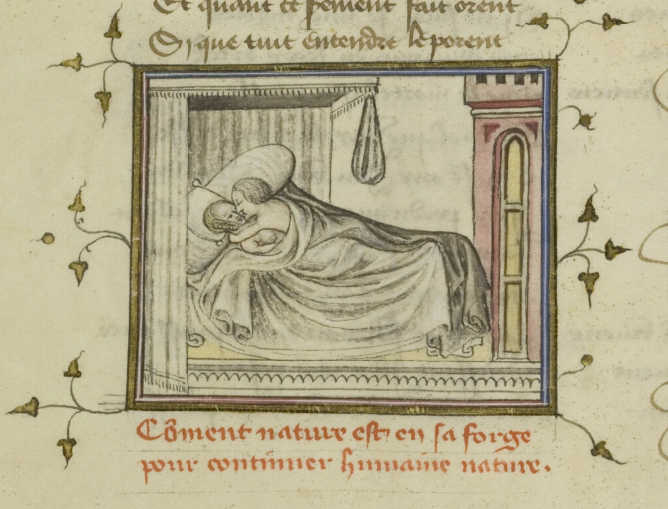 Et quant ce serment fait orent
Si que tuit entendre le porent
Cõment nature est en sa forge
pour continuer humaine nature.